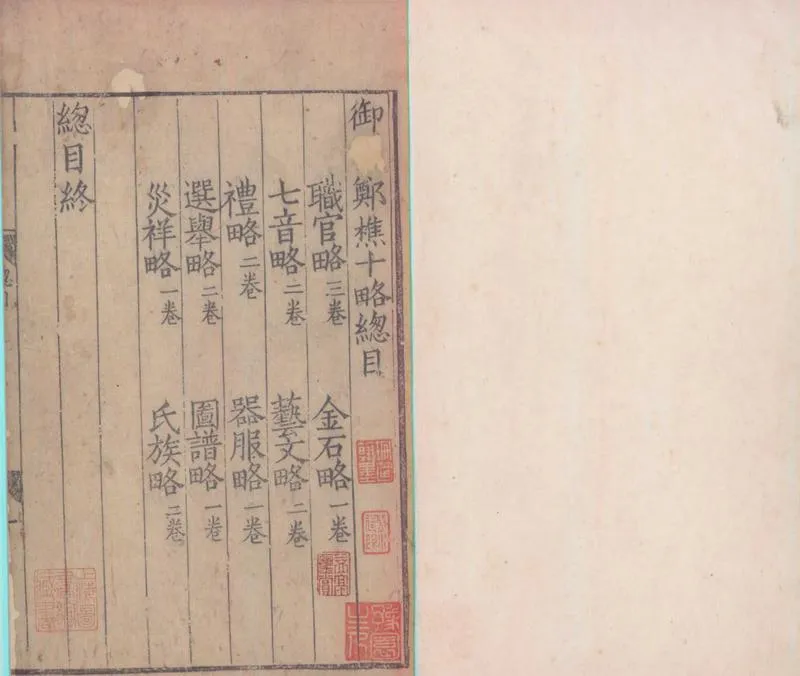 御 鄭樵十略緫目
職官略 三卷 金石略 一卷
七音略 二卷 藝文略 二卷
禮略 二卷 器服略 一卷
選舉略 二卷 圖譜略 一卷
災祥略 一卷 氏族略 二卷
緫目終